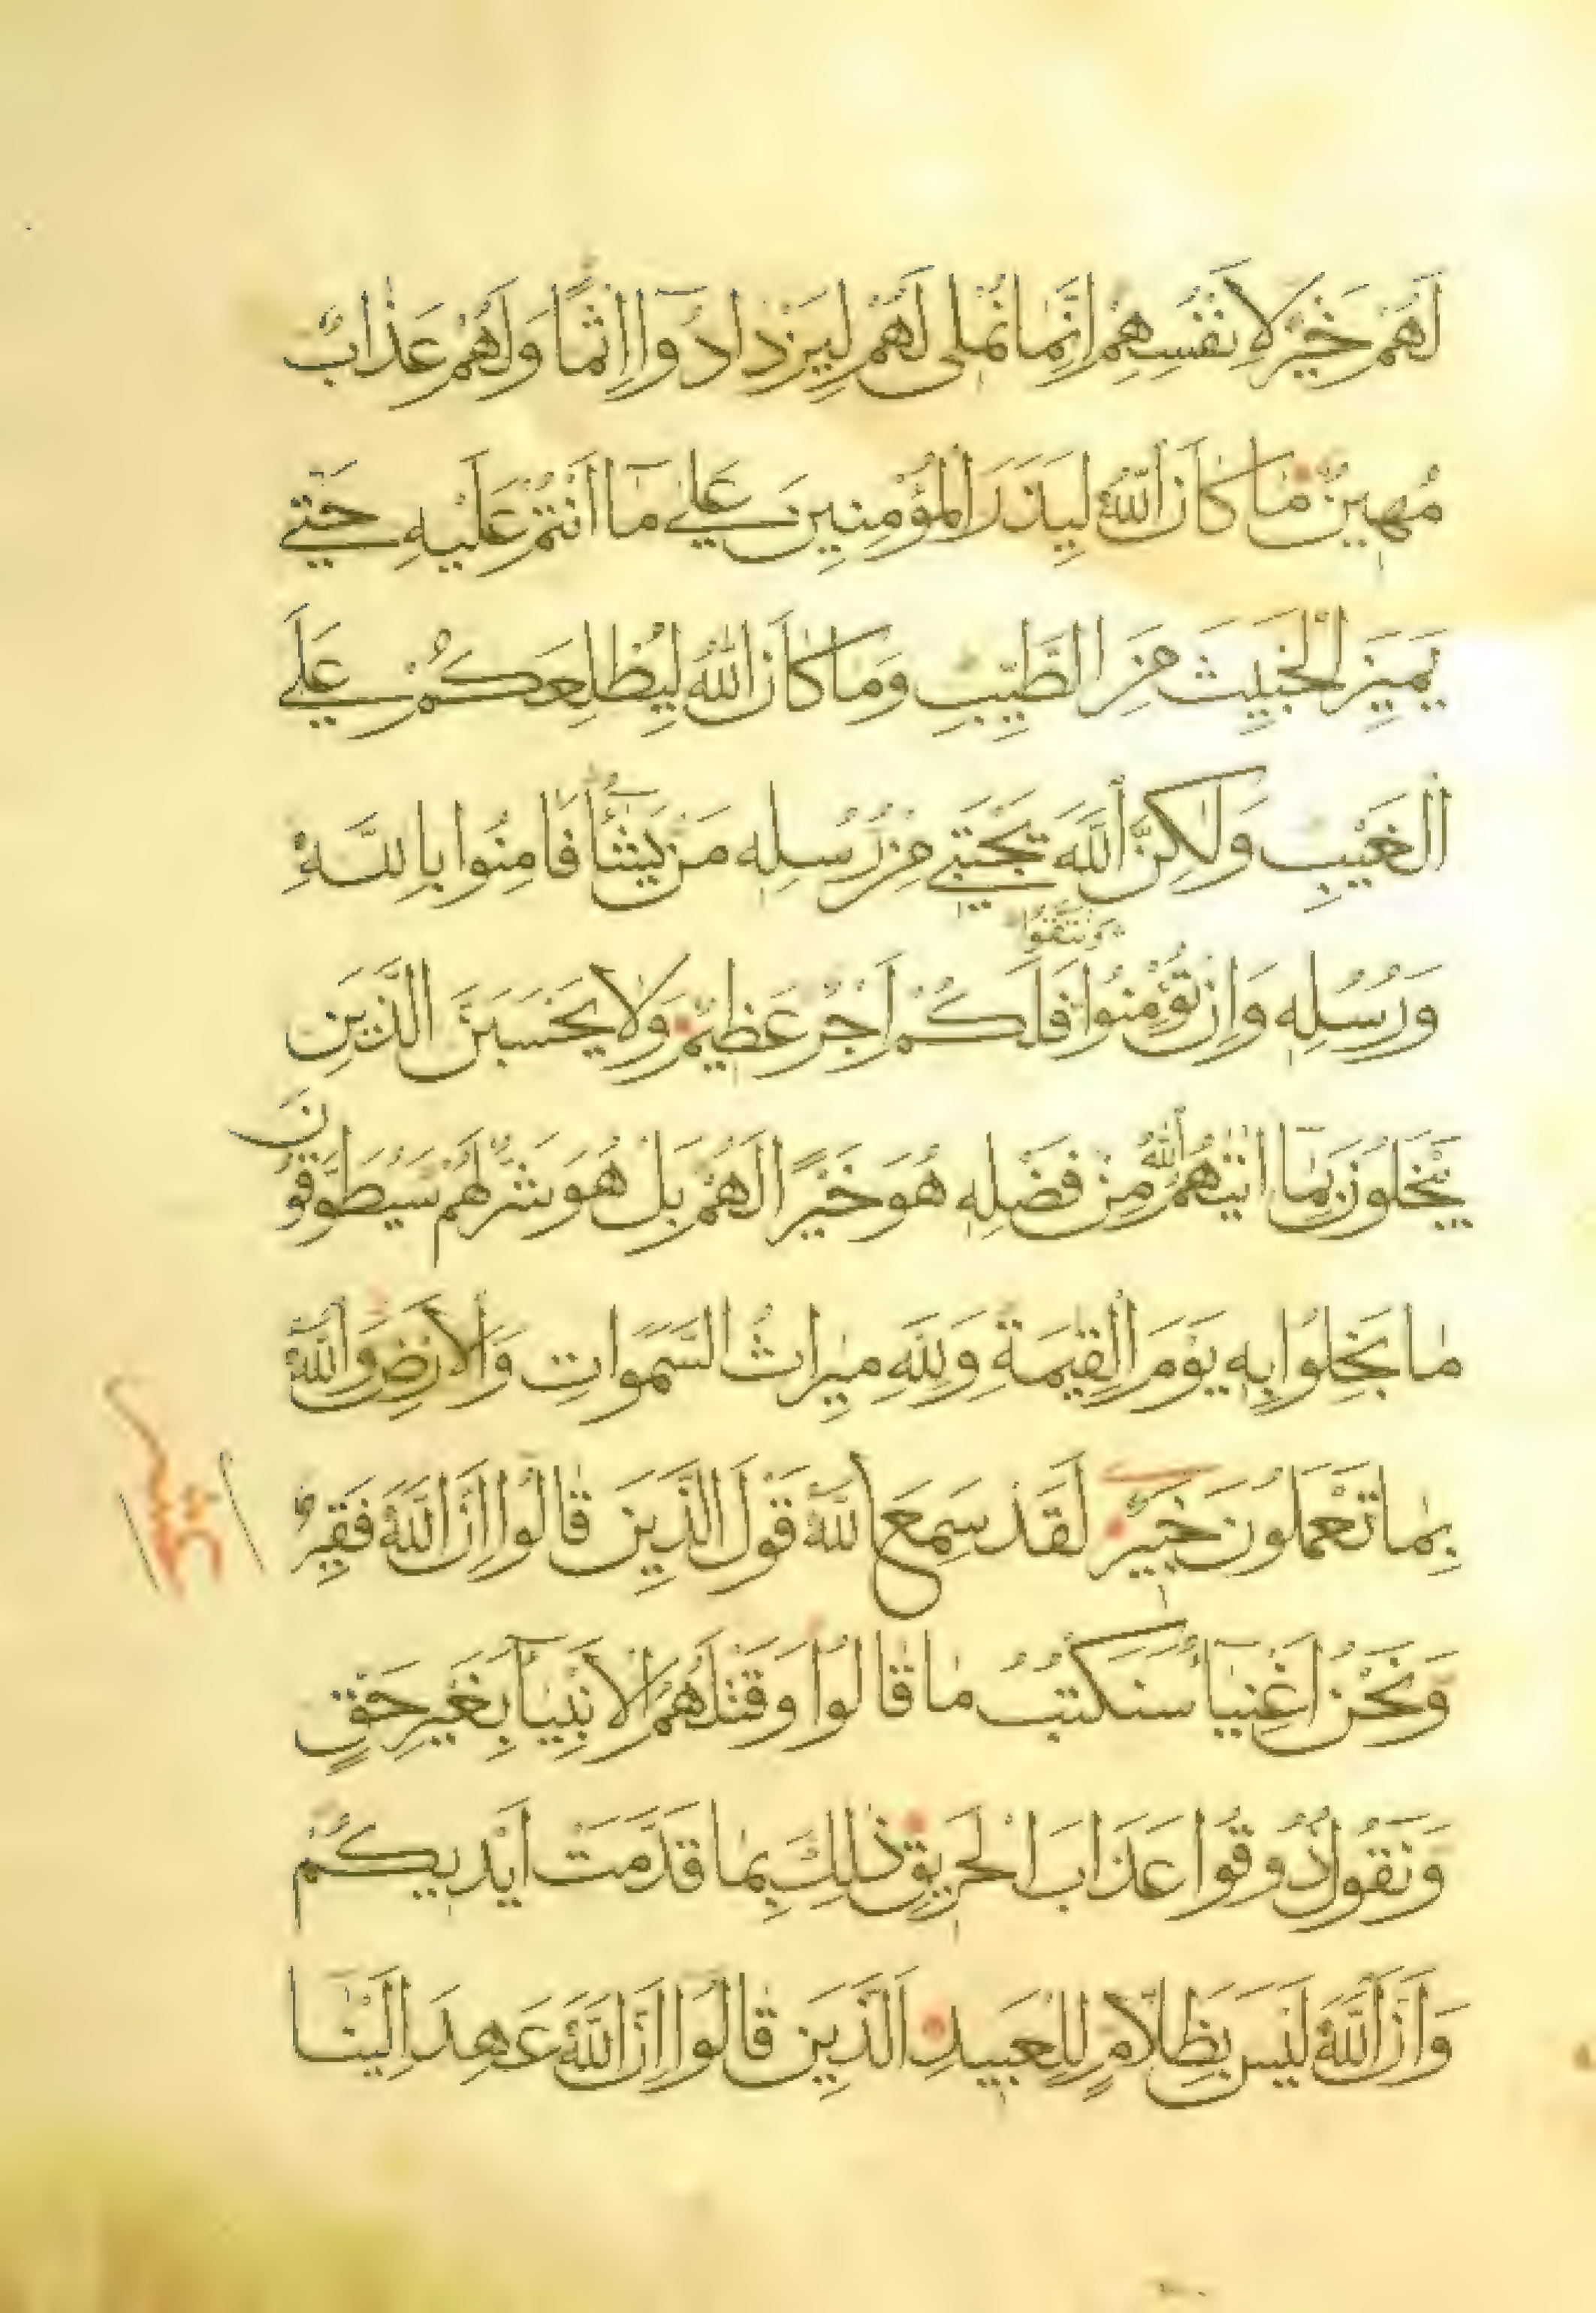 لَهُمْ خَيْرٌ لِاَنْفُسِهِمْ اِنَّمَا نُمْلِى لَهُمْ لِيَزْدَادُوٓا اِثْمًا وَلَهُمْ عَذَابٌ
مُهِينٌ مَا كَانَ اللّٰهُ لِيَذَرَ الْمُؤْمِنِينَ عَلٰى مَٓا اَنْتُمْ عَلَيْهِ حَتّٰى
يَمِيزَ الْخَبِيثَ مِنَ الطَّيِّبِ وَمَا كَانَ اللّٰهُ لِيُطْلِعَكُمْ عَلَى
الْغَيْبِ وَلٰكِنَّ اللّٰهَ يَجْتَبِى مِنْ رُسُلِهٖ مَنْ يَشَٓاءُ فَاٰمِنُوا بِاللّٰهِ
وَرُسُلِهٖ وَاِنْ تُؤْمِنُوا وَتَتَّقُوا فَلَكُمْ اَجْرٌ عَظِيمٌ وَلَا يَحْسَبَنَّ الَّذِينَ
يَبْخَلُونَ بِمَٓا اٰتٰيهُمُ اللّٰهُ مِنْ فَضْلِهٖ هُوَ خَيْرًا لَهُمْ بَلْ هُوَ شَرٌّ لَهُمْ سَيُطَوَّقُونَ
مَا بَخِلُوا بِهٖ يَوْمَ الْقِيٰمَةِ وَلِلّٰهِ مِيرَاثُ السَّمٰوَاتِ وَالْاَرْضِ وَاللّٰهُ
بِمَا تَعْمَلُونَ خَبِيرٌ لَقَدْ سَمِعَ اللّٰهُ قَوْلَ الَّذِينَ قَالُوٓا اِنَّ اللّٰهَ فَقِيرٌ
وَنَحْنُ اَغْنِيَٓاءُ سَنَكْتُبُ مَا قَالُوا وَقَتْلَهُمُ الْاَنْبِيَٓاءَ بِغَيْرِ حَقٍّ
وَنَقُولُ ذُوقُوا عَذَابَ الْحَرِيقِ ذٰلِكَ بِمَا قَدَّمَتْ اَيْدِيكُمْ
وَاَنَّ اللّٰهَ لَيْسَ بِظَلَّامٍ لِلْعَبِيدِ اَلَّذِينَ قَالُوٓا اِنَّ اللّٰهَ عَهِدَ اِلَيْنَٓا